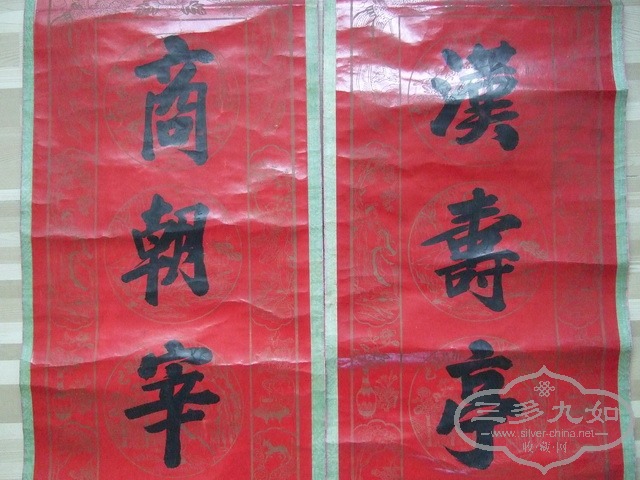 漢壽亭
商朝宰
三多九如
www.silver-china.net
收·藏·网